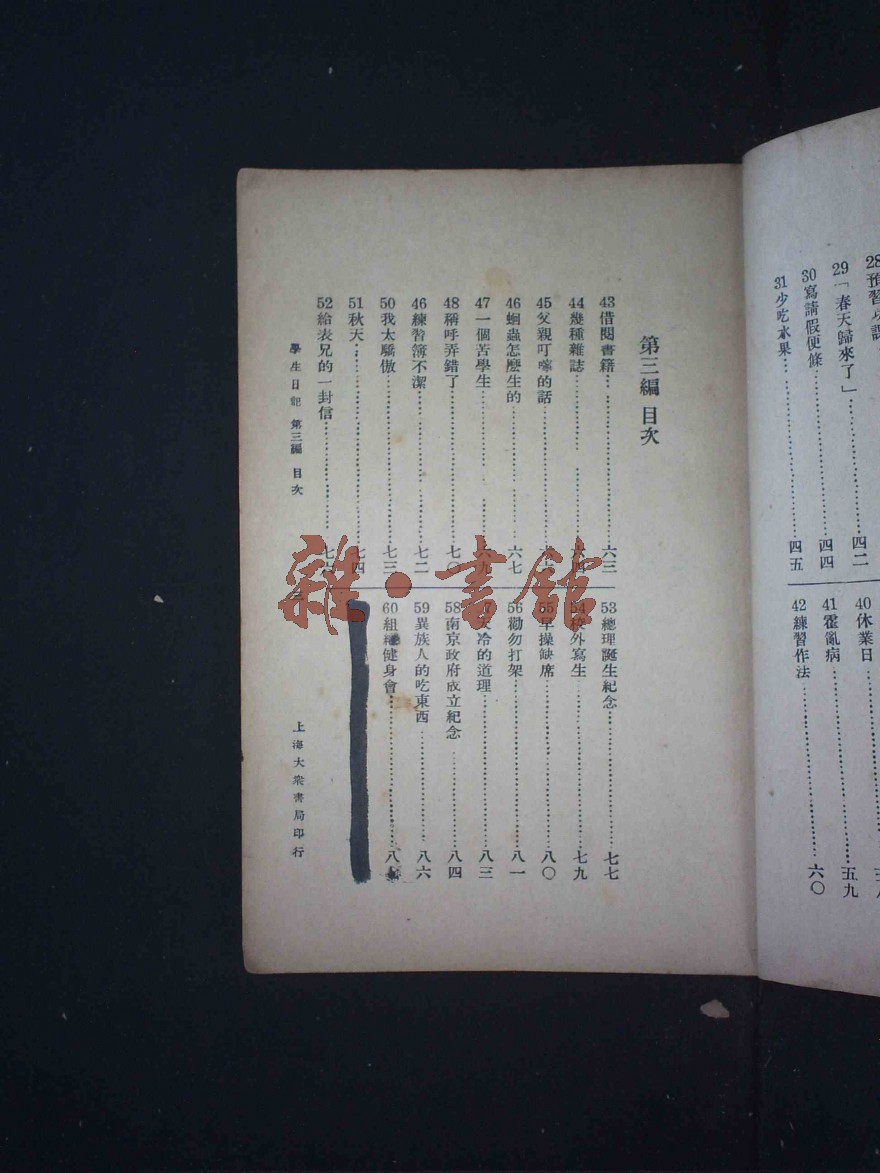 28預習功課
29「春天歸來了」……四二
30寫請假便條……四四
31少吃水果……四五
40休業日
41霍亂病……五九
42練習作法……六〇
第三編 目次
43借閱書籍……六三
44幾種雜誌……六四
45父親叮嚀的話
46蛔蟲怎麽生的……六七
47一個苦學生……六九
48稱呼弄錯了……七〇
46練習簿不潔……七二
50我太驕傲……七三
51秋天……七四
52給表兄的一封信……七六
53總理誕生紀念……七七
54校外寫生……七九
55早操缺席……八〇
56勸勿打架……八一
57天冷的道理……八三
58南京政府成立紀念……八四
59異族人的吃東西……八六
60組織健身會……八七
學生日記 第三編 目次
三
上海大衆書局印行
雜·書館